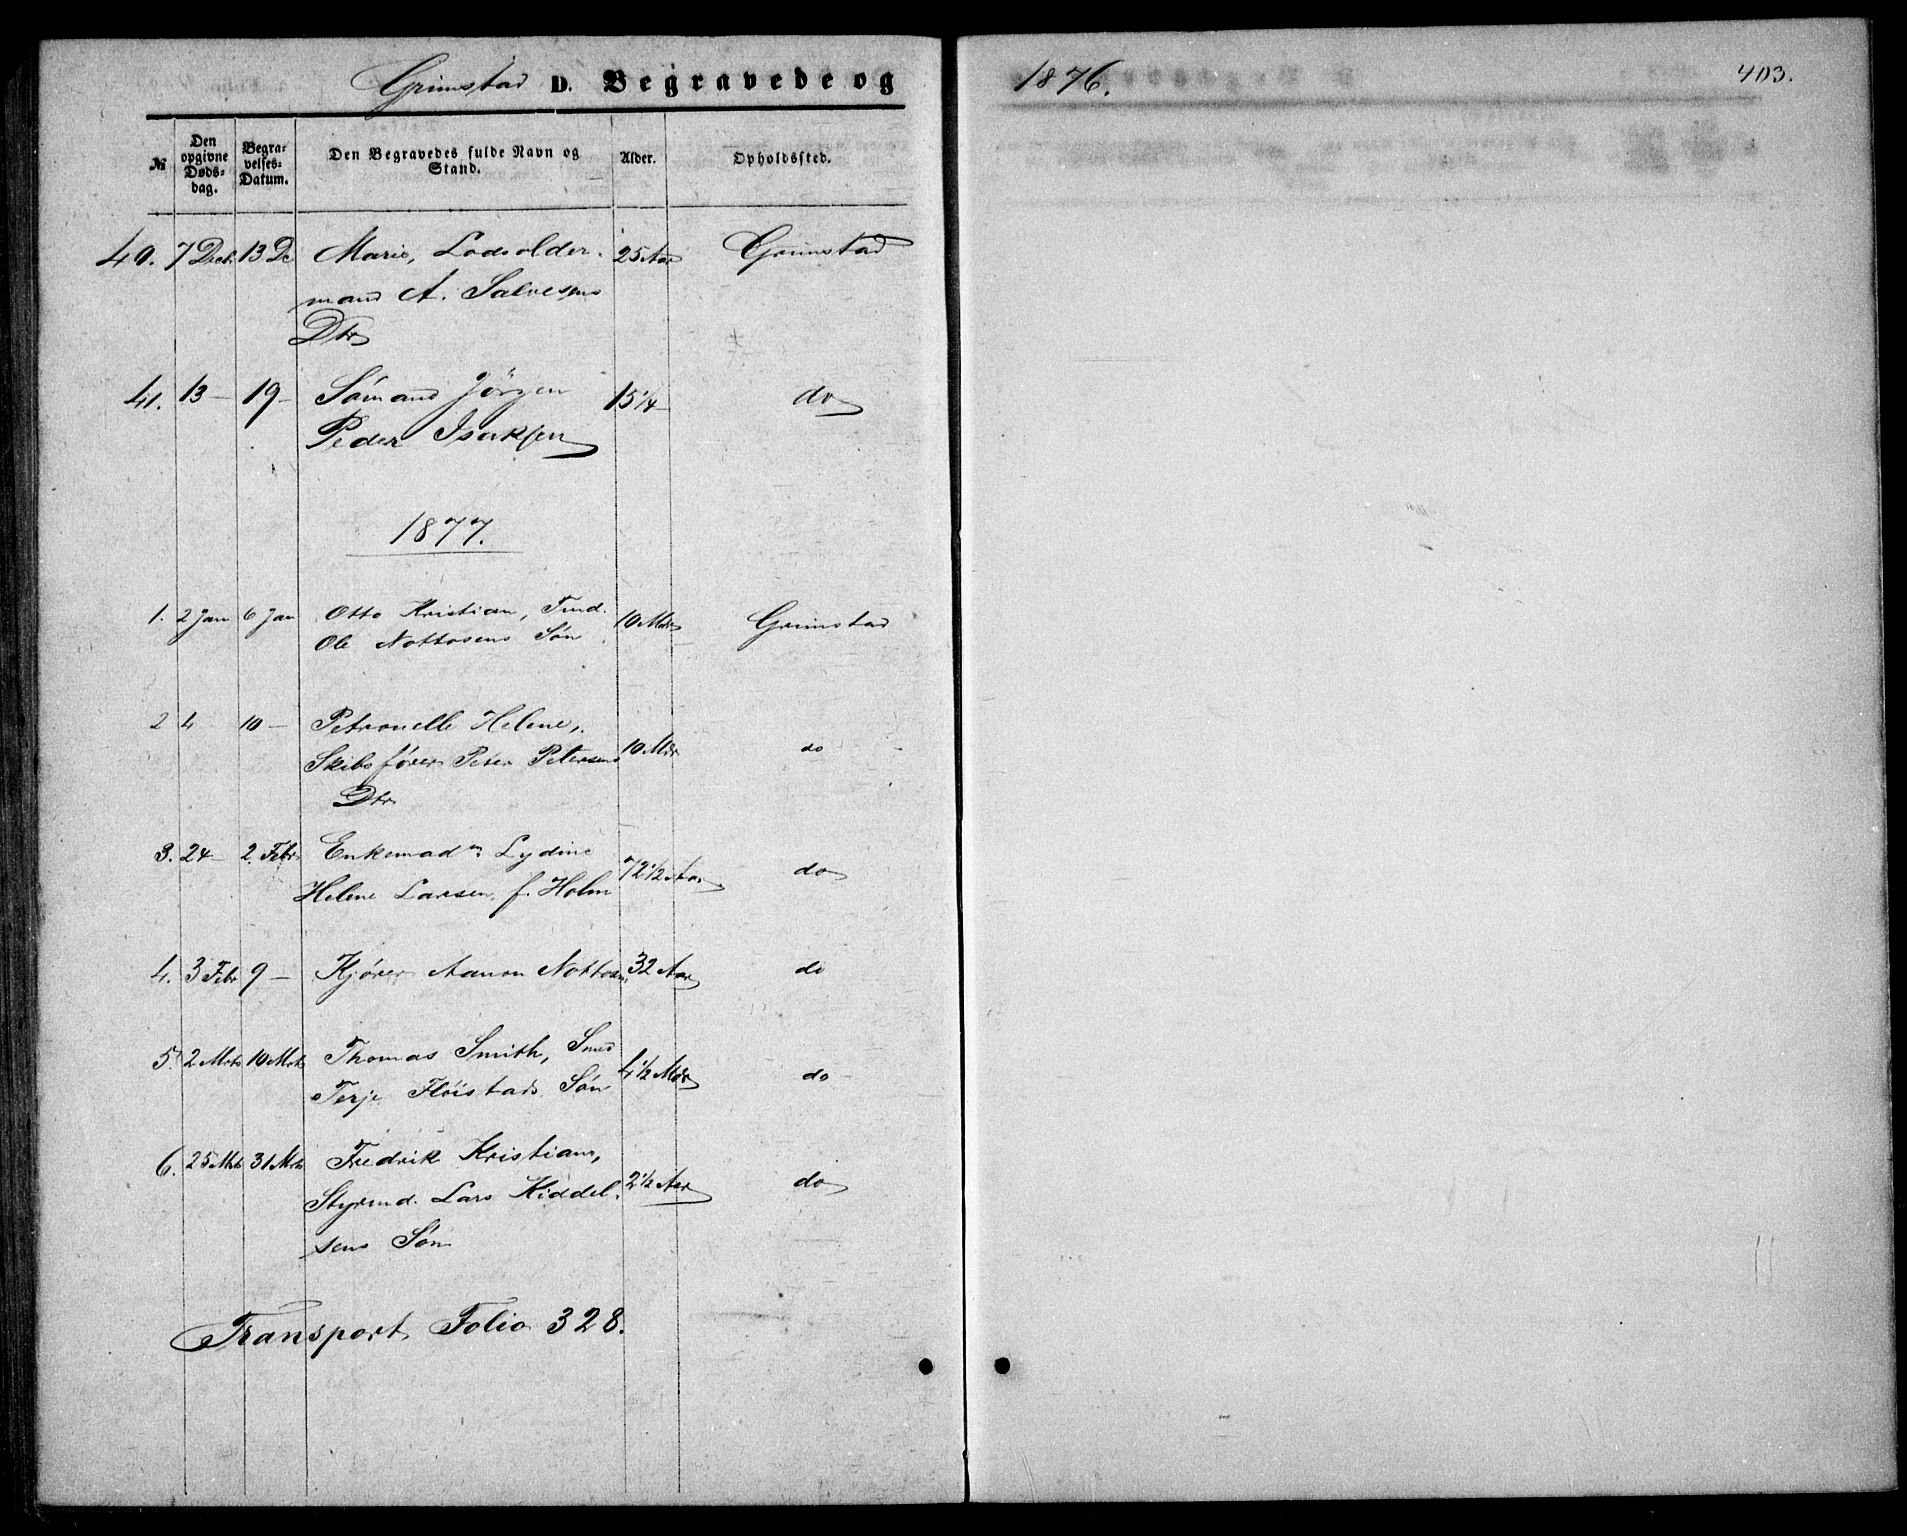 Grimstad D. Begravede og
1876.
403.
№ Den opgivne Døds-dag. Begra-velses-Datum. Den Begravedes fulde Navn og Stand. Alder. Opholdssted.
40. 7 Decb. 13 Dc Marie, Lodsolder- 25 Aar Grimstad
mand A. Salvesens
Dtr
41. 13 - 19 - Sømand Jörgen 15 1/4 do
Peder Isaksen
1877.
1. 2 Jan 6 Jan Otto Kristian, Tmd. 10 Mdr Grimstad
Ole Nottosens Søn
2 4 10 - Petronelle Helene,
Skibsfører Peter Petersens 10 Mdr do
Dtr
3. 24 - 2. Febr Enkemadm Lydine
Helene Larsen, f. Holm 72 1/2 Aar do
4. 3 Febr 9 - Kjører Aanon Nottosen 32 Aar do
5. 2 Mrts 10 Mrts Thomas Smith, Smed
Terje Fløistads Søn 4 1/2 Mdr do
6. 25 Mrts 31 Mrts Fredrik Kristian,
Styrmd. Lars Kiddel- 2 1/2 Aar do
sens Søn
Transport Folio 328.